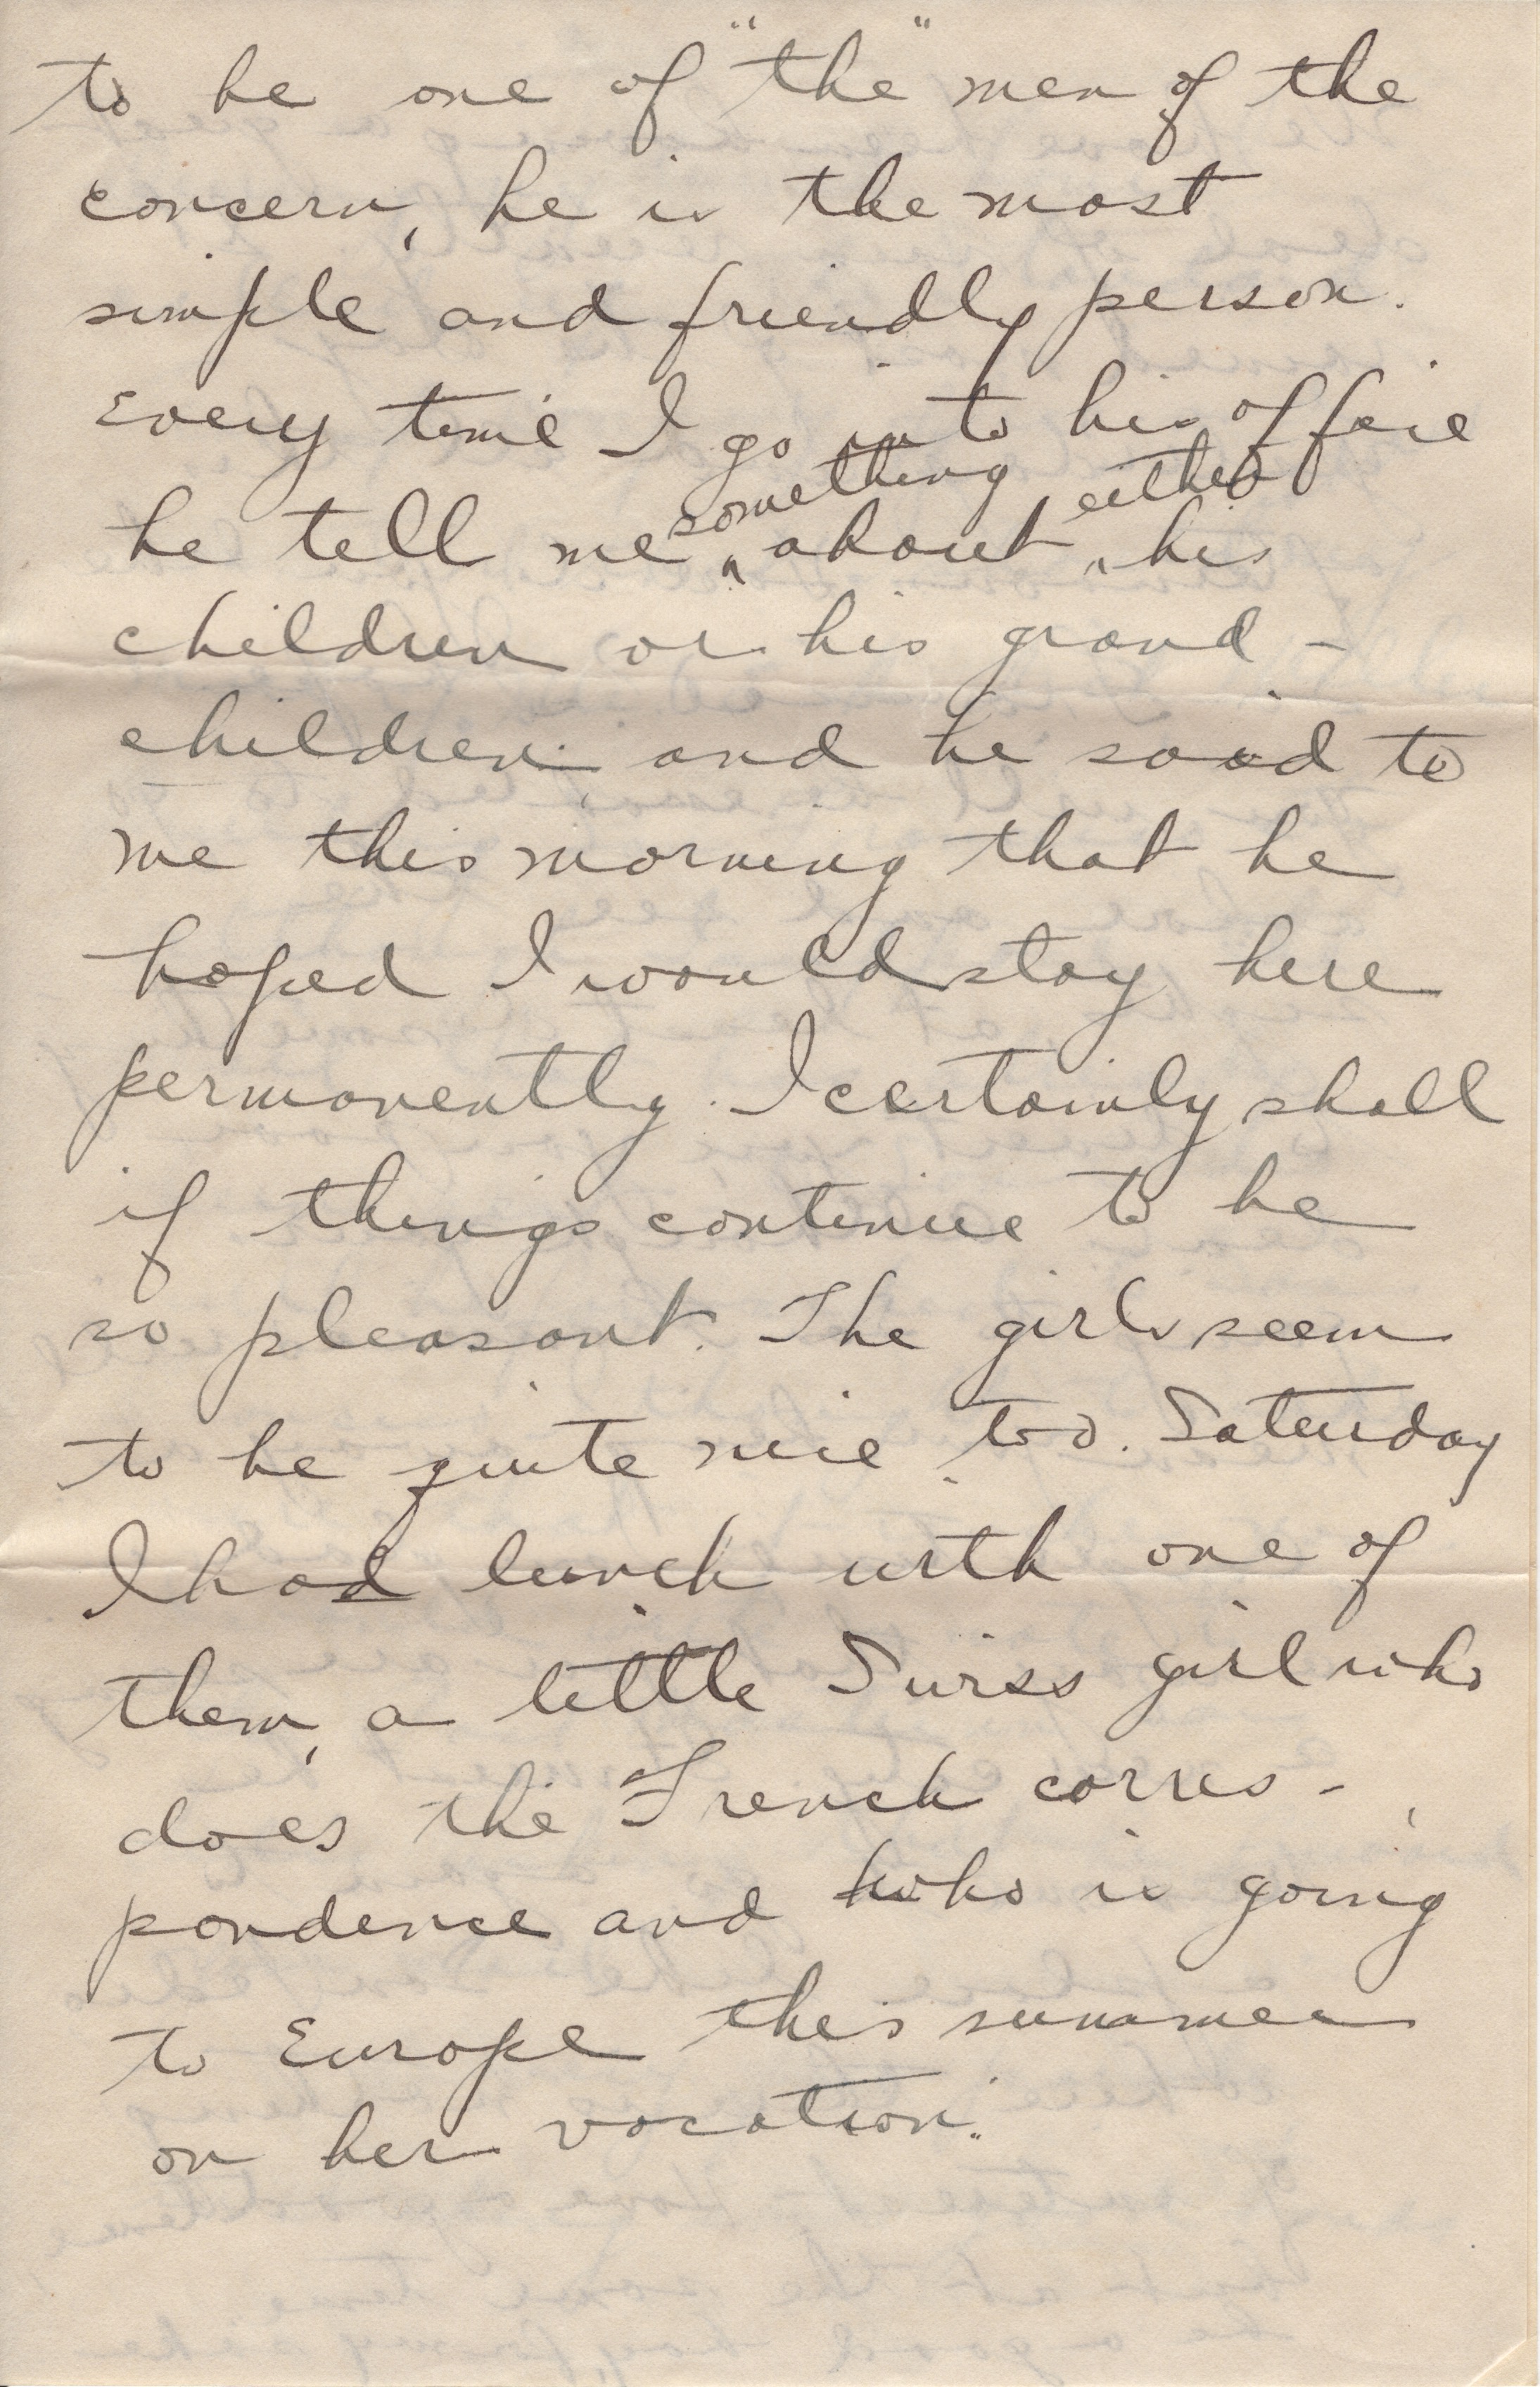 to be one of "the" men of the
concern, he is the most
simple and friendly person.
Every time I go into his office
he tell me something about either his
children or his grand-
children, and he said to
me this morning that he
hoped I would stay here
permanently. I certainly shall
if things continue to be
so pleasant. The girls seem
to be quite nice too. Saturday
I had lunch with one of
them, a little Swiss girl who
does the French corres-
pondence and who is going
to Europe this summer
on her vacation.